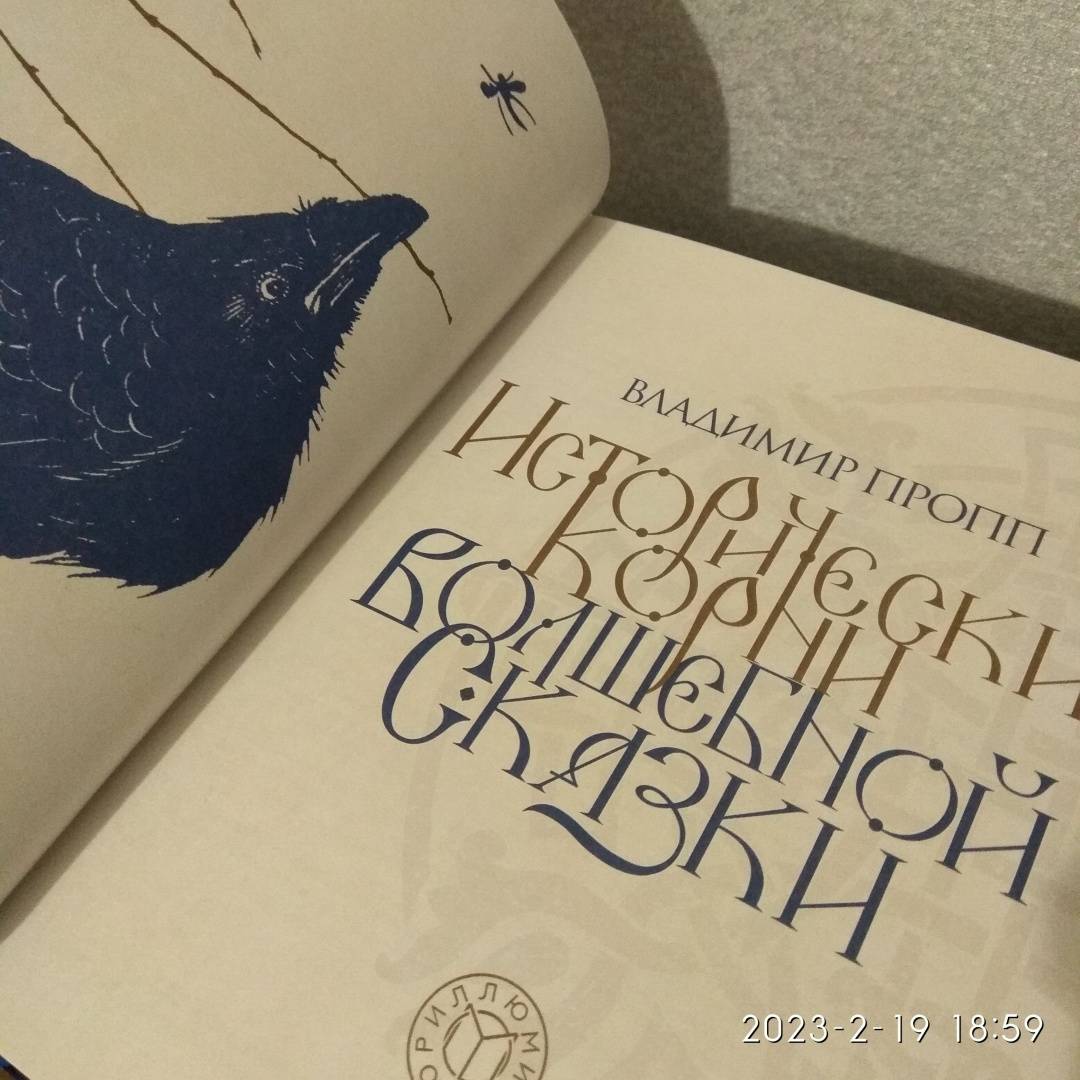 ВЛАДИМИР ПРОПП
ИСТОРИЧЕСКИ
КОРНИ
ВОЛШЕБНОЙ
СКАЗКИ
ОРИЛЛЮМИ
2023-2-19 18:59